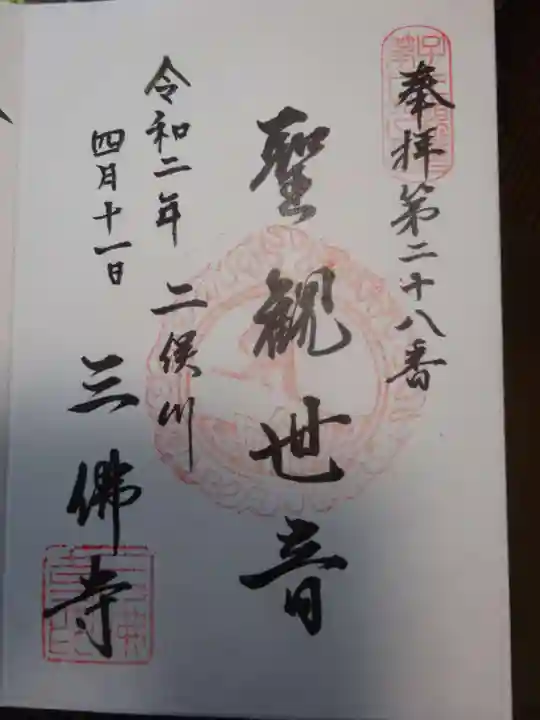 奉拝 第二十八番
聖観世音
令和二年 二俣川
四月十一日
三佛寺